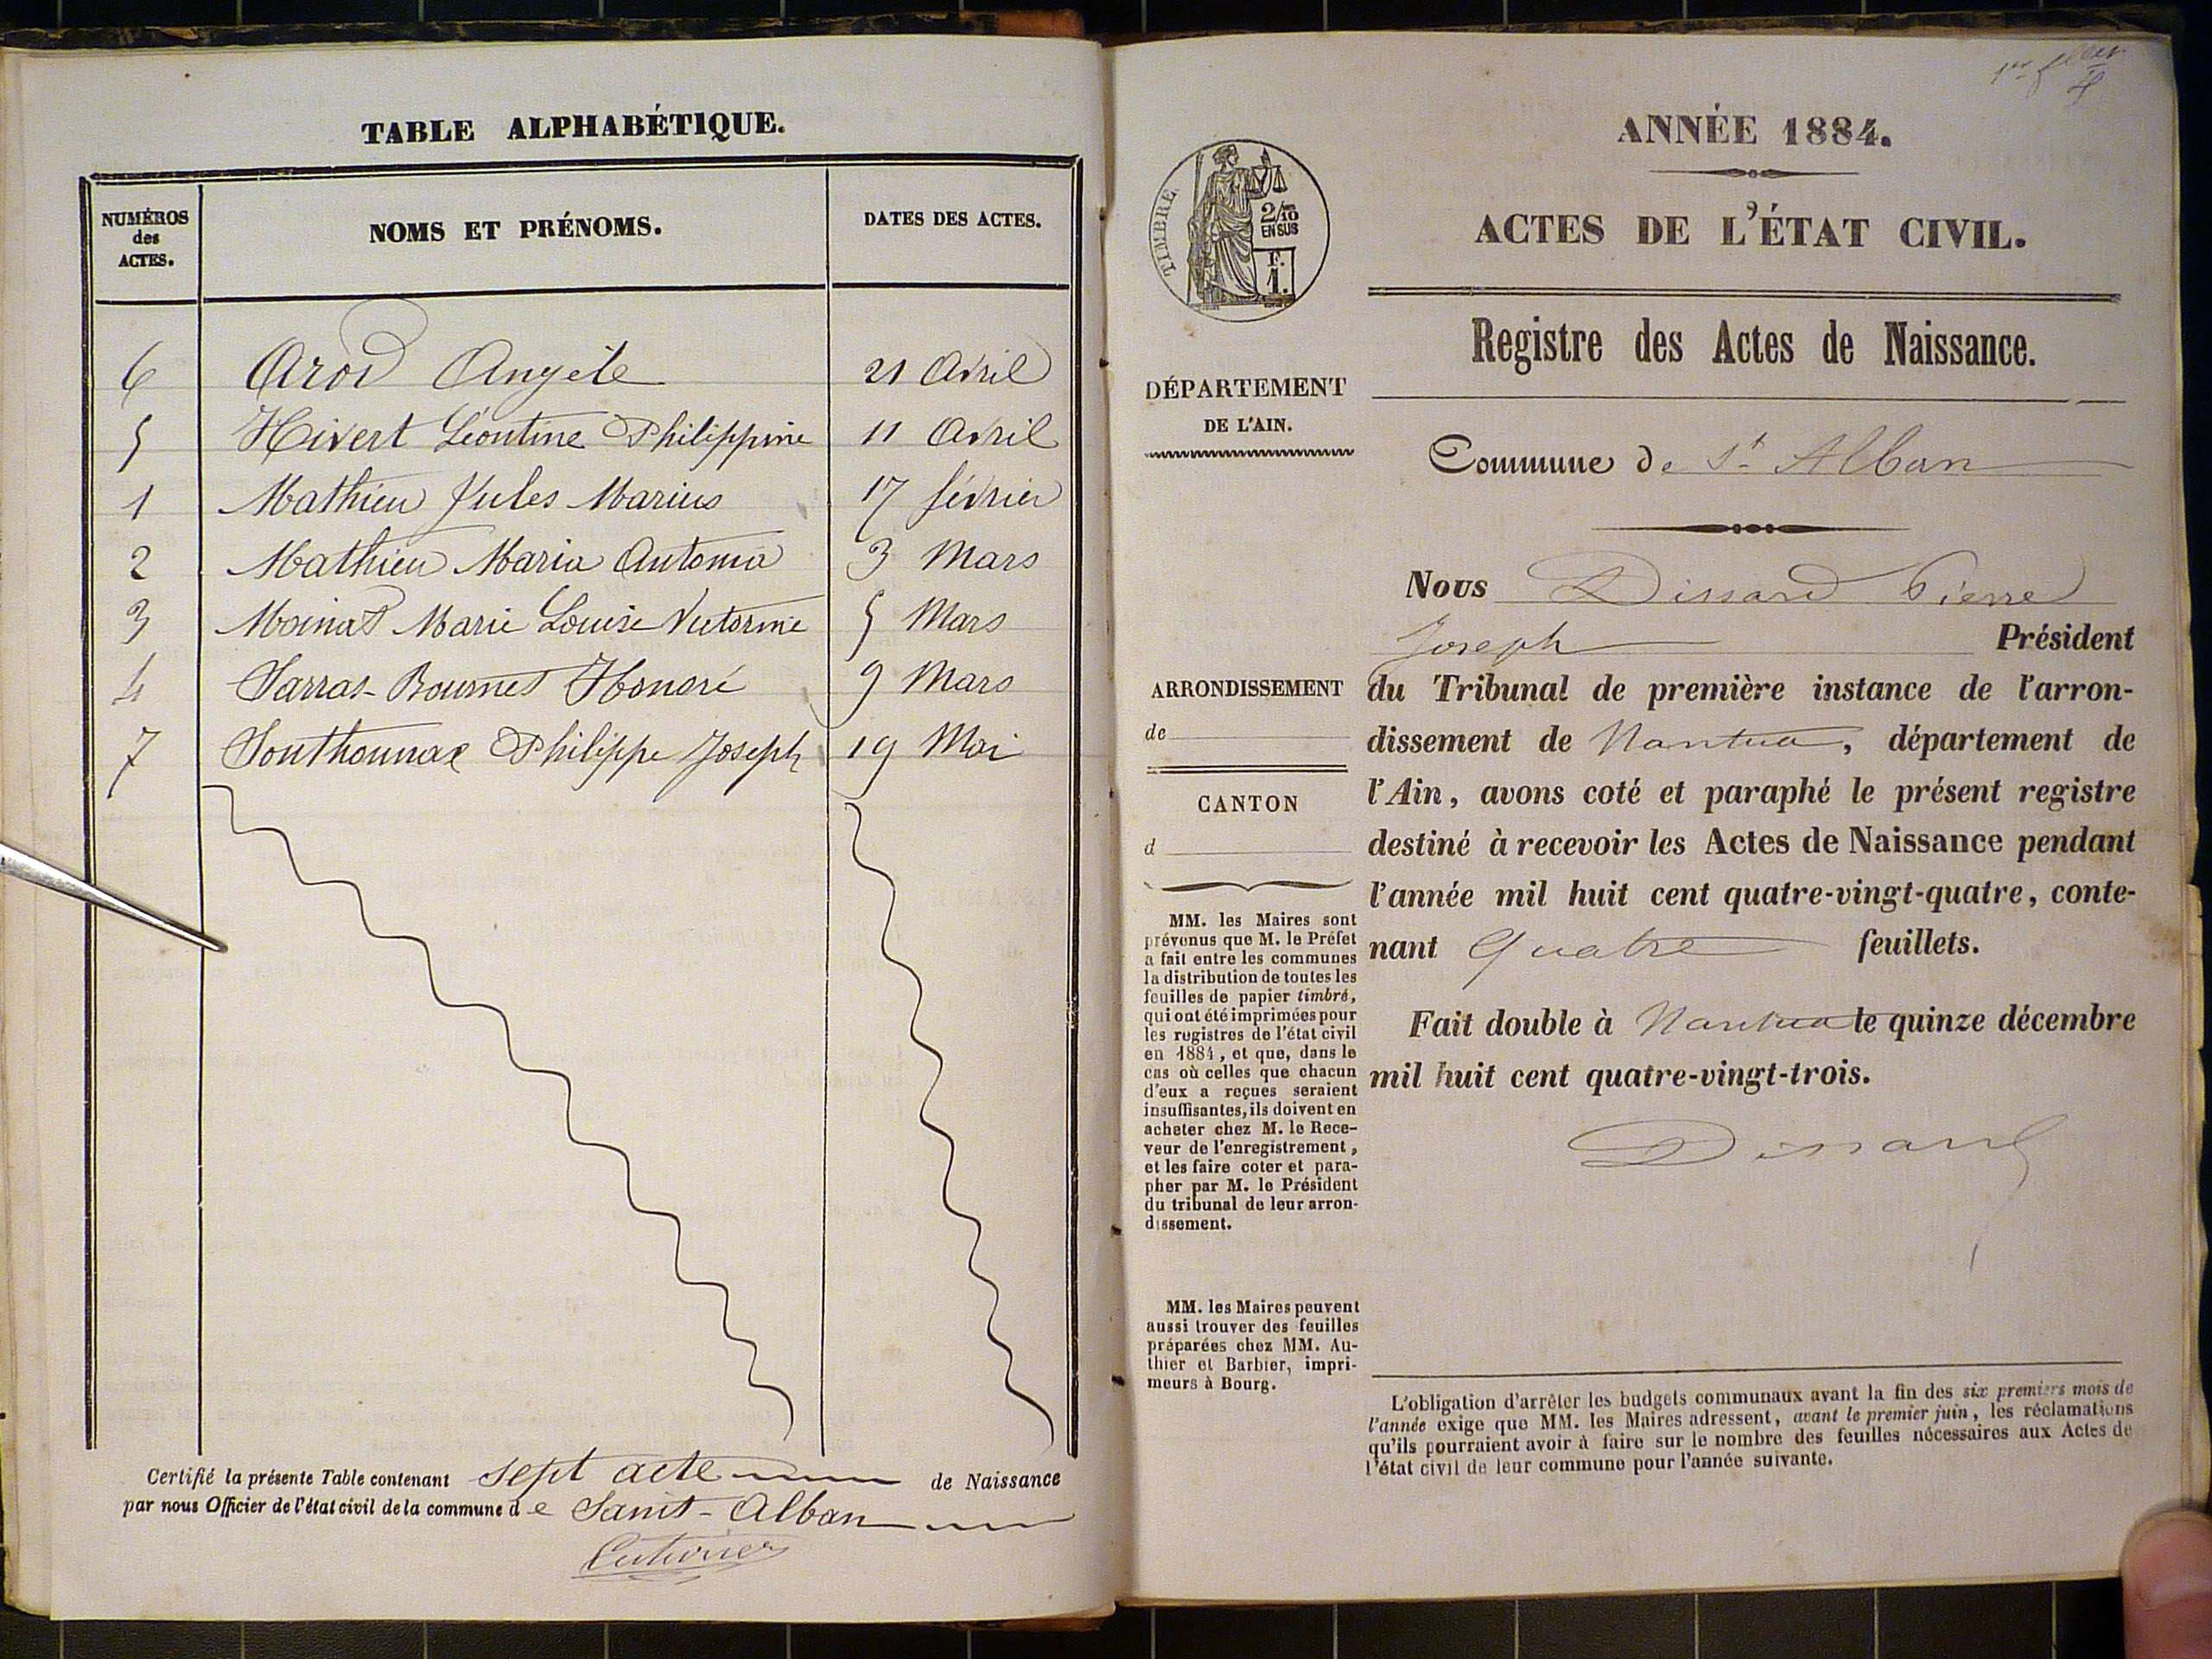 TABLE ALPHABÉTIQUE.
NUMÉROS des ACTES. NOMS ET PRÉNOMS. DATES DES ACTES.
6 Arod Angèle 21 Avril
5 Hivert Léontine Philippine 11 Avril
1 Mathieu Jules Marius 17 février
2 Mathieu Maria Antonia 3 Mars
3 Moinat Marie Louise Victorine 5 Mars
4 Sarras-Bournet Honoré 9 Mars
7 Southonnax Philippe Joseph 19 Mai
Certifié la présente Table contenant sept acte de Naissance
par nous Officier de l'état civil de la commune de Saint-Alban
1er
ANNÉE 1884.
ACTES DE L'ÉTAT CIVIL.
TIMBRE
2/10
EN SUS
F.
1.
Registre des Actes de Naissance.
DÉPARTEMENT
DE L'AIN.
Commune de St Alban
Nous Dissard Pierre
Joseph Président
du Tribunal de première instance de l'arron-
dissement de Nantua, département de
l'Ain, avons coté et paraphé le présent registre
destiné à recevoir les Actes de Naissance pendant
l'année mil huit cent quatre-vingt-quatre, conte-
nant quatre feuillets.
Fait double à Nantua le quinze décembre
mil huit cent quatre-vingt-trois.
Dissard
ARRONDISSEMENT
de
CANTON
d
MM. les Maires sont
prévenus que M. le Préfet
a fait entre les communes
la distribution de toutes les
feuilles de papier timbré,
qui ont été imprimées pour
les registres de l'état civil
en 1884, et que, dans le
cas où celles que chacun
d'eux a reçues seraient
insuffisantes, ils doivent en
acheter chez M. le Rece-
veur de l'enregistrement,
et les faire coter et para-
pher par M. le Président
du tribunal de leur arron-
dissement.
MM. les Maires peuvent
aussi trouver des feuilles
préparées chez MM. Au-
thier et Barbier, impri-
meurs à Bourg.
L'obligation d'arrêter les budgets communaux avant la fin des six premiers mois de
l'année exige que MM. les Maires adressent, avant le premier juin, les réclamations
qu'ils pourraient avoir à faire sur le nombre des feuilles nécessaires aux Actes de
l'état civil de leur commune pour l'année suivante.